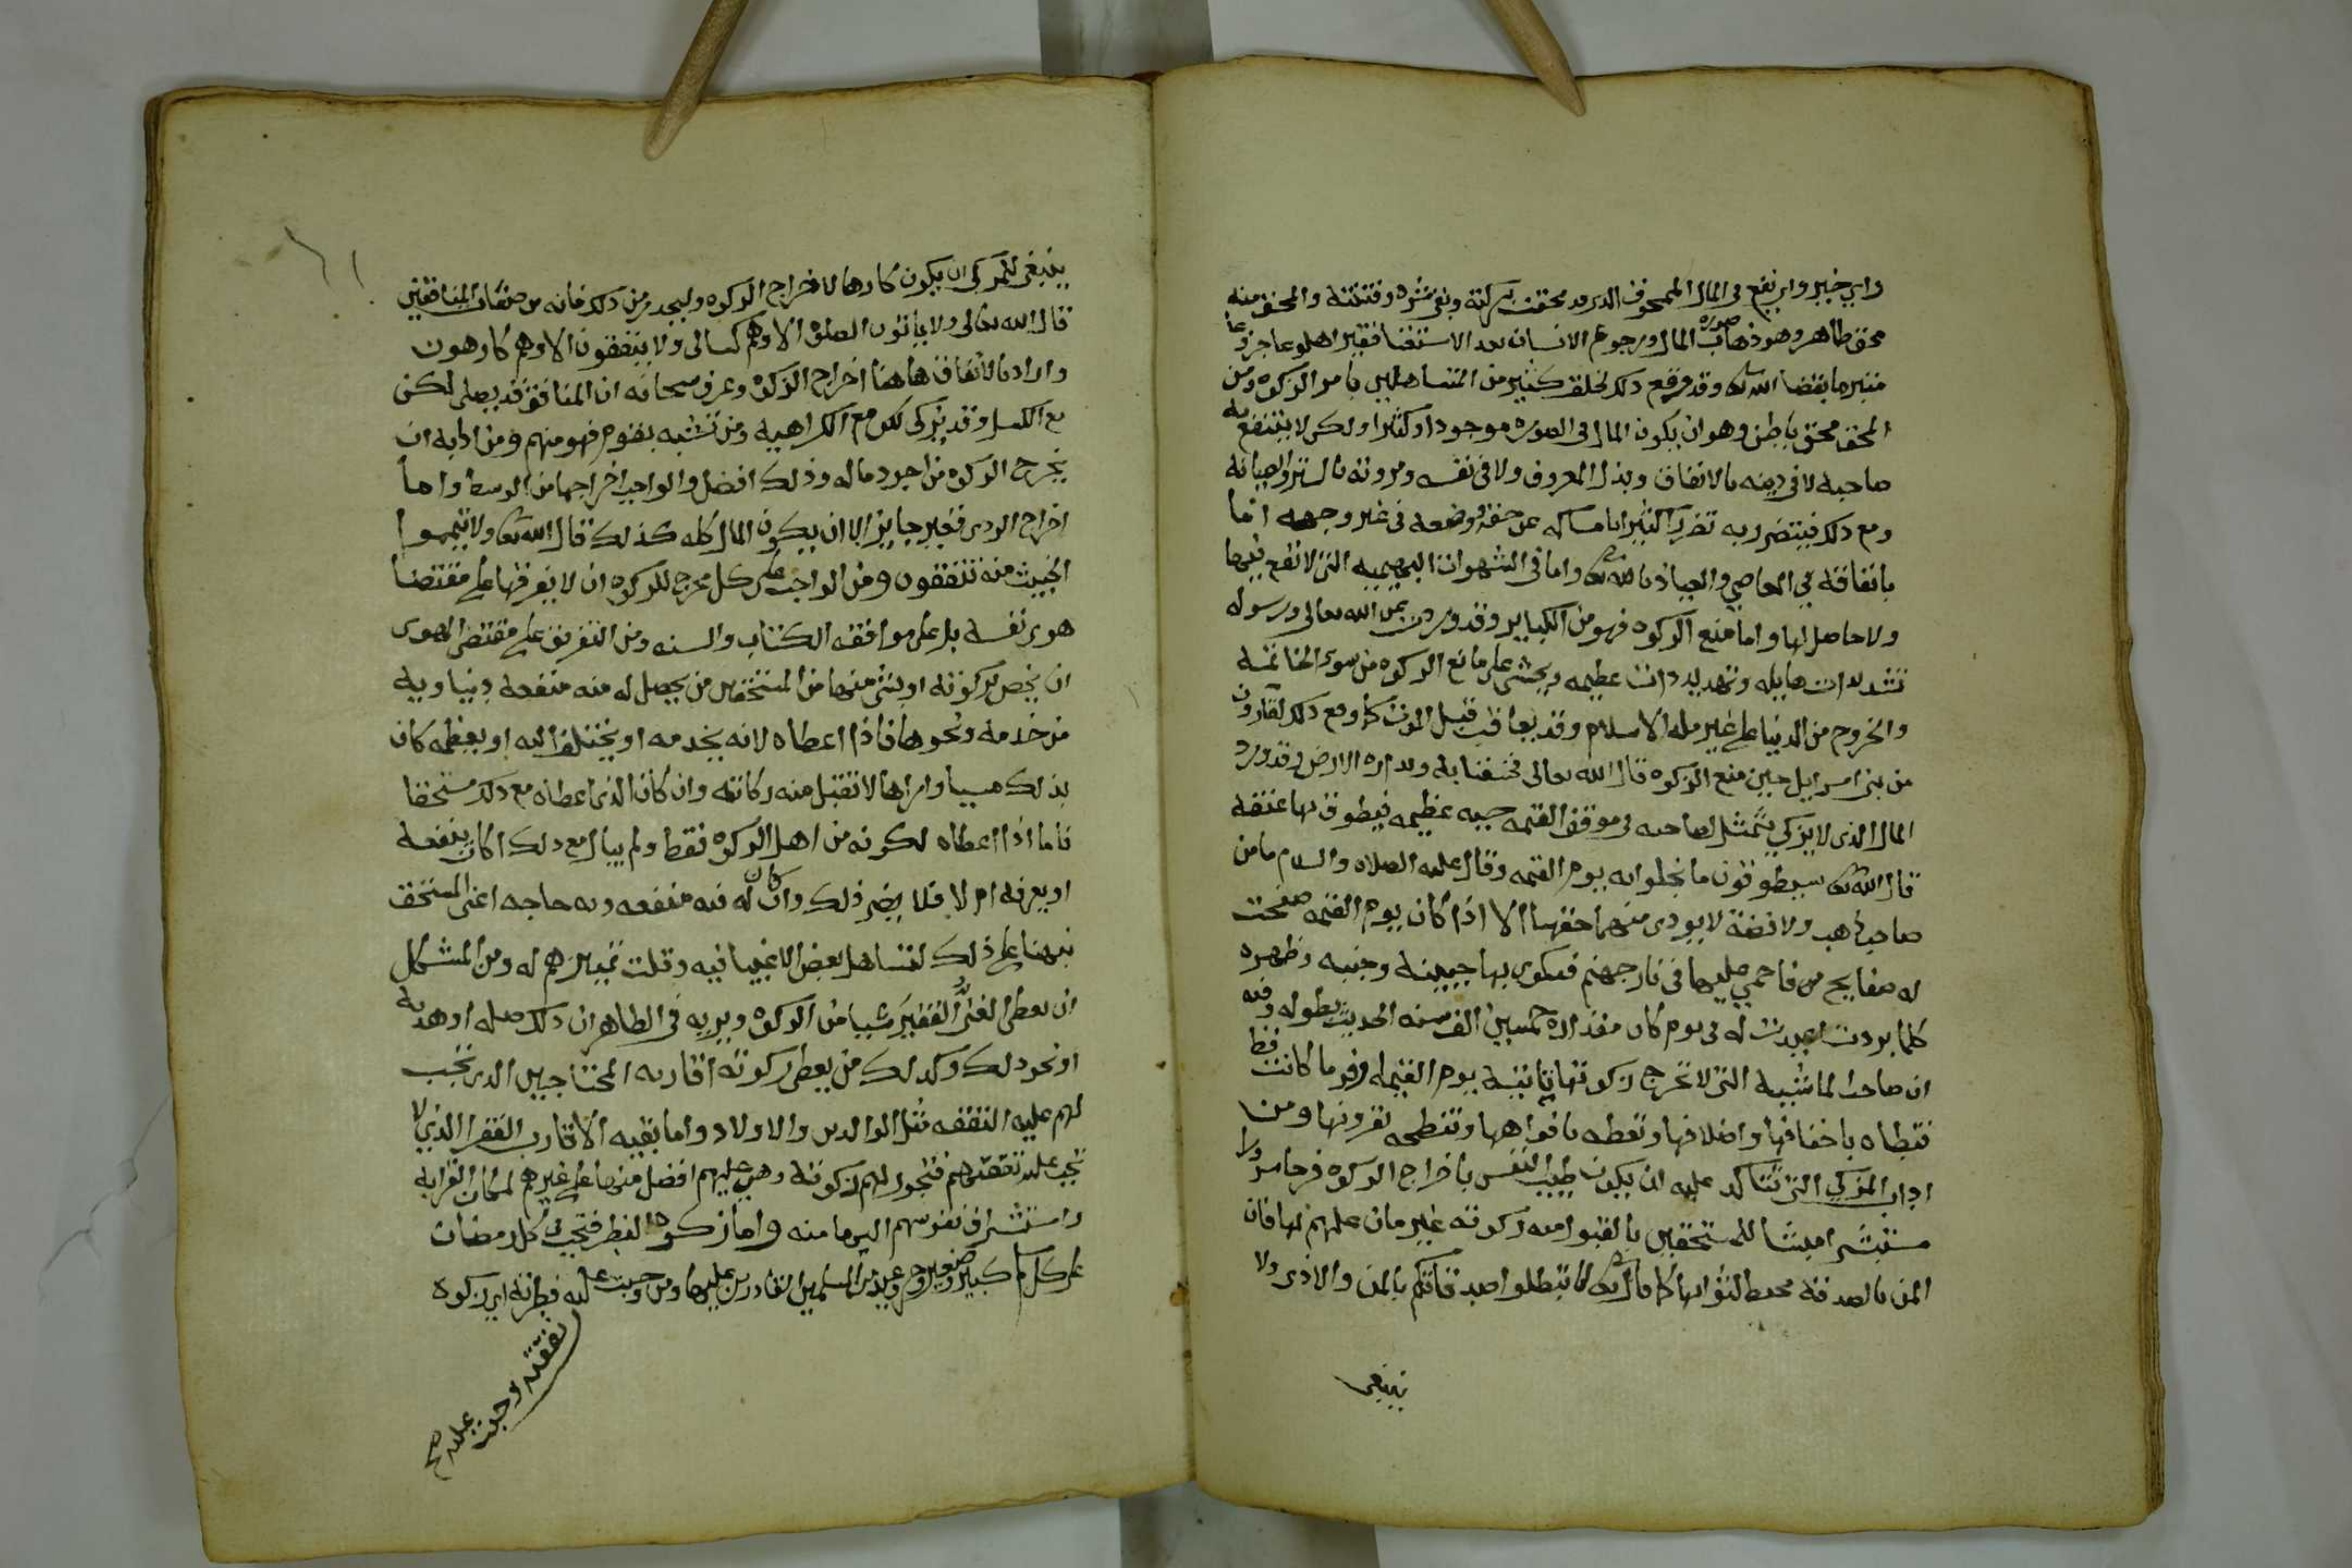 واي خير واي نفع في المال الممحوق الذي قد محقت بركته وبقي شره وفتنته والمحق منه
محق ظاهر وهو ذهاب صورة المال ورجوع الانسان بعد الاستغنا فقيرا هلوعا جزوعا
متبرما بقضا الله تعالى وقد وقع ذلك لخلق كثير من المتساهلين بامر الزكوه ومن
المحق محق باطن وهو ان يكون المال في الصوره موجودا وكثيرا ولكن لا ينتفع به
صاحبه لا في دينه بالانفاق وبذل المعروف ولا في نفسه ومروته بالستر والصيانه
ومع ذلك فيتضرر به تضررا كثيرا بامساكه عن حقه ووضعه في غير وجهه اما
بانفاقه في المعاصي والعياذ بالله تعالى واما في الشهوات البهيميه التي لا نفع فيها
ولا حاصل لها واما منع الزكوه فهو من الكباير وقد وردت فيه من الله تعالى ورسوله
تشديدات هايله وتهديدات عظيمه ويخشى على مانع الزكوه من سوء الخاتمه
والخروج من الدنيا على غير مله الاسلام وقد يعاقب قبل الموت كما وقع ذلك لقارون
من بني اسرايل حين منع الزكوه قال الله تعالى فخسفنا به وبداره الارض وقد ورد
المال الذي لا يزكي يتمثل لصاحبه في موقف القيمه حيه عظيمه فيطوق بها عنقه
قال الله تعالى سيطوقون ما بخلوا به يوم القيمه وقال عليه الصلاه والسلام ما من
صاحب ذهب ولا فضة لا يودى منهما حقهما الا اذا كان يوم القيمه صفحت
له صفايح من فاحمي عليها في نار جهنم فيكوى بها جبينه وجنبه وظهره
كلما بردت اعيدت له في يوم كان مقداره خمسين الف سنه الحديث بطوله وفيه
ان صاحب الماشيه التي لا تخرج زكوتها تاتيه يوم القيمه اوفر ما كانت قط
فتطاه باخفافها واضلافها وتعضه بافواهها وتنطحه بقرونها ومن
اداب المزكي التي تتاكد عليه ان يكون طيب النفس باخراج الزكوه فرحا مسرورا
مستبشرا ممتنا للمستحقين بالقبول منه زكوته غير مان عليهم بها فان
المن بالصدقة محبط لثوابها كما قال تعالى لا تبطلوا صدقاتكم بالمن والاذى ولا
ينبغي
ينبغي للمزكي ان يكون كارها لاخراج الزكوه وليحذر من ذلك فانه من صفات المنافقين
قال الله تعالى ولا ياتون الصلوة الا وهم كسالى ولا ينفقون الا وهم كارهون
واراد بالانفاق هاهنا اخراج الزكوه وعرف سبحانه ان المنافق قد يصلي لكن
مع الكسل وقد يزكي لكن مع الكراهيه ومن تشبه بقوم فهو منهم ومن ادابه ان
يخرج الزكوه من اجود ماله وذلك افضل والواجب اخراجها من الوسط واما
اخراج الردي فغير جايز الا ان يكون المال كله كذلك قال الله تعالى ولا تيمموا
الخبيث منه تنفقون ومن الواجب على كل مخرج للزكوه ان لا يفرقها على مقتضا
هوى نفسه بل على موافقه الكتاب والسنه ومن التفريق على مقتضى الهوى
ان يخص بزكوته او بشي منها من المستحقين من يحصل له منه منفعه دنياويه
من خدمه ونحوها فاذا اعطاه لانه يخدمه او يختلف اليه او يعظمه كان
بذلك مسيا وامرا بها لا تقبل منه زكاته وان كان الذي اعطاه مع ذلك مستحقا
فاما اذا اعطاه لكونه من اهل الزكوه فقط ولم يبال مع ذلك اكان ينفعه
او يعرفه ام لا فلا يضر ذلك وان كان له فيه منفعه وبه حاجه اعني المستحق
نبهنا على ذلك لتساهل بعض الاغنيا فيه وقلت تمييزهم له ومن المشكل
ان يعطي الغني الفقير شيا من الزكوه ويريه في الظاهر ان ذلك صله او هديه
او نحو ذلك وكذلك من يعطي زكوته اقاربه المحتاجين الذين تجب
لهم عليه النفقه مثل الوالدين والاولاد واما بقيه الاقارب الفقرا الذين لا
تجب عليه نفقتهم فتجوز لهم زكوته وهي عليهم افضل منها على غيرهم لمكان القرابه
واستشراف نفوسهم اليها منه واما زكوة الفطر فتجب في كل رمضان
على كل كبير وصغير وحر وعبد من المسلمين القادرين عليها ومن وجبت عليه فطرته اي زكوه
نفقته وجبت عليه